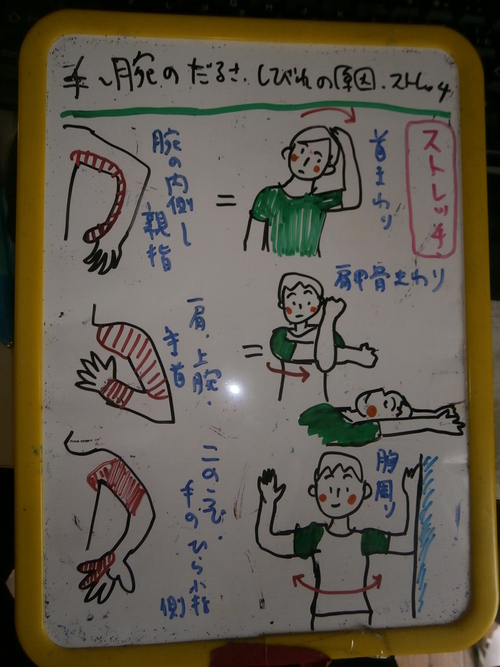 手、腕のだるさ、しびれの原因、ストレッチ
ストレッチ
腕の内側し
親指
=
首まわり
肩、上腕、
手首
=
肩甲骨まわり
二のうで、
手のひら小指
側
胸周り